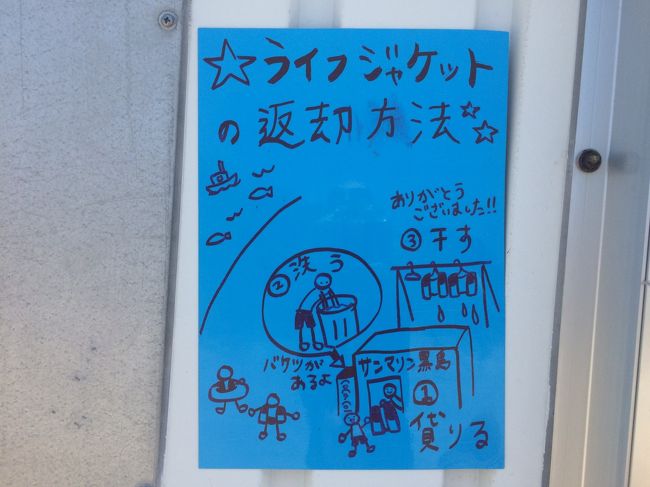 ☆ライフジャケット
の返却方法☆☆
ありがとう
ございました!!
③干す
②洗う
バケツが
あるよ
サンマリン黒島
CocaCol
①
貸りる